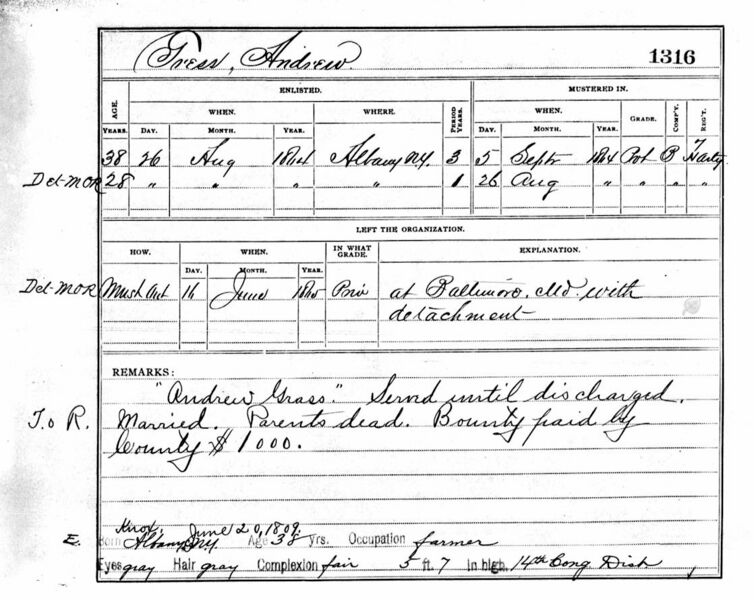 Tress, Andrew. 1316
ENLISTED. MUSTERED IN.
AGE. WHEN. WHERE. PERIOD WHEN. GRADE. COMP'Y. REG'T.
YEARS. DAY. MONTH. YEAR. YEARS. DAY. MONTH. YEAR.
38 26 Aug 1864 Albany N.Y. 3 5 Septr 1864 Pvt B
Det-MOR 28 " " " " 1 26 Aug " " " "
LEFT THE ORGANIZATION.
HOW. WHEN. IN WHAT GRADE. EXPLANATION.
DAY. MONTH. YEAR.
Det-MOR Must Out 16 June 1865 Priv at Baltimore, Md. with
detachment
REMARKS:
"Andrew Grass." Served until discharged.
T.o R. Married. Parents dead. Bounty paid by
County $1000.
Knox, June 20, 1809.
E. Born Albany N.Y. Age 38 yrs. Occupation farmer
Eyes gray Hair gray Complexion fair 5 ft. 7 in high. 14th Cong Dist.